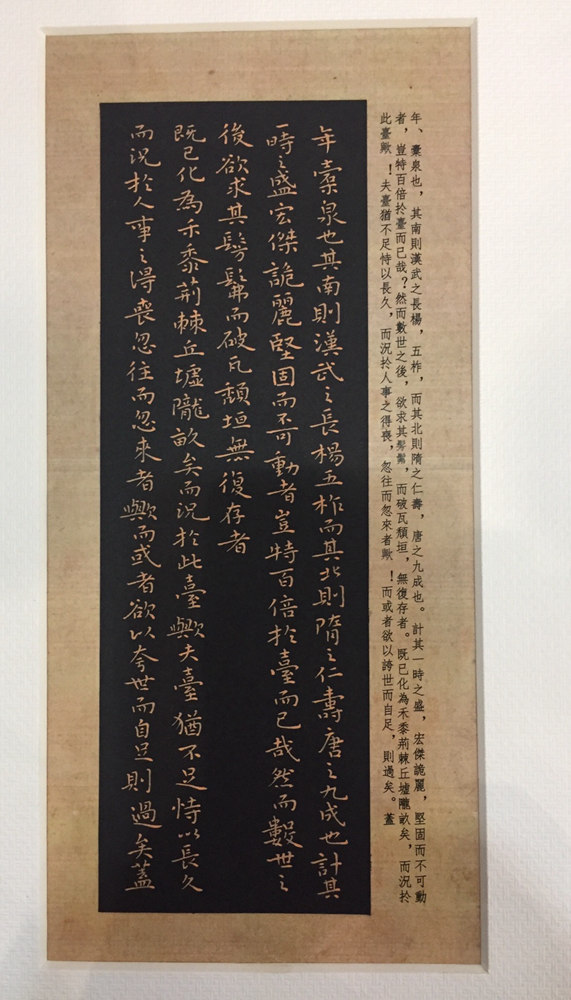 年、橐泉也,其南則漢武之長楊,五柞,而其北則隋之仁壽,唐之九成也。計其一時之盛,宏傑詭麗,堅固而不可動
者,豈特百倍於臺而已哉?然而數世之後,欲求其髣髴,而破瓦頹垣,無復存者。既已化為禾黍荊棘丘墟隴畝矣,而況於
此臺歟!夫臺猶不足恃以長久,而況於人事之得喪,忽往而忽來者歟!而或者欲以誇世而自足,則過矣。蓋
年橐泉也其南則漢武之長楊五柞而其北則隋之仁壽唐之九成也計其
一時之盛宏傑詭麗堅固而不可動者豈特百倍於臺而已哉然而數世之
後欲求其髣髴而破瓦頹垣無復存者
既已化為禾黍荊棘丘墟隴畝矣而況於此臺歟夫臺猶不足恃以長久
而況於人事之得喪忽往而忽來者歟而或者欲以夸世而自足則過矣蓋